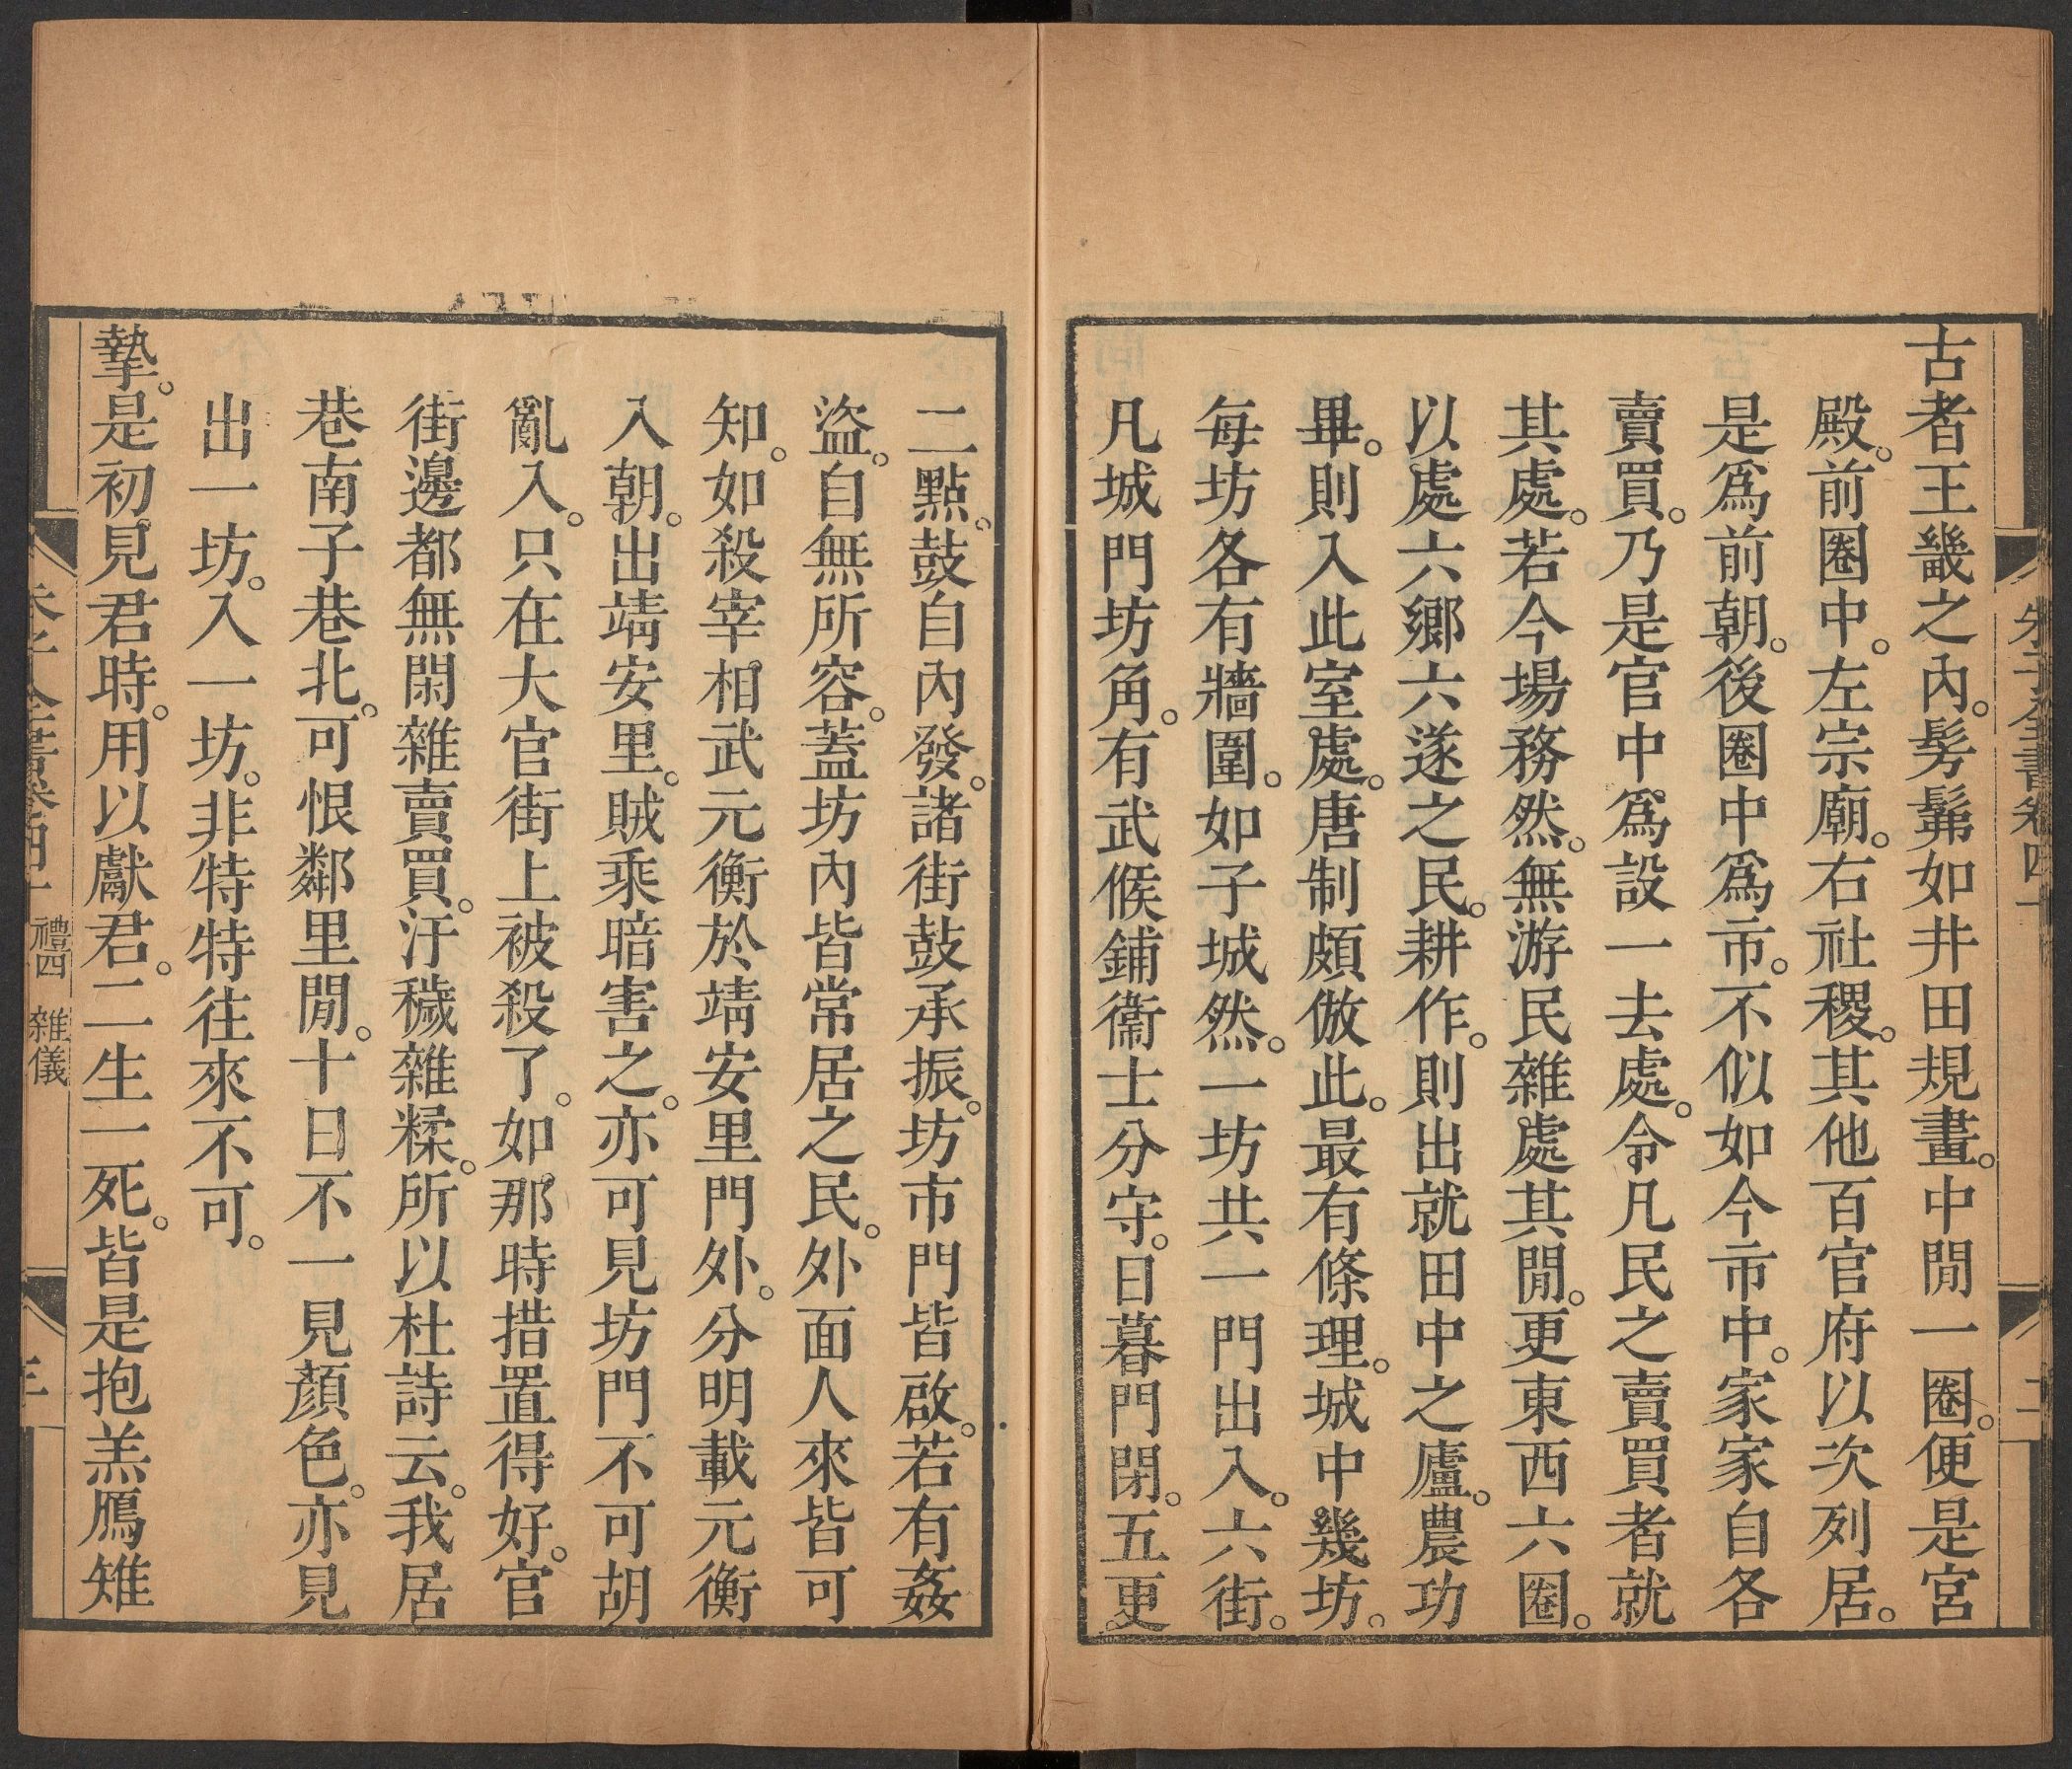 朱子全書卷四十
二
古者王畿之內。髣髴如井田規畫。中閒一圈。便是宮
殿。前圈中。左宗廟。右社稷。其他百官府以次列居。
是爲前朝。後圈中爲市。不似如今市中。家家自各
賣買。乃是官中爲設一去處。令凡民之賣買者就
其處。若今場務然。無游民雜處其閒。更東西六圈。
以處六鄉六遂之民。耕作。則出就田中之廬。農功
畢。則入此室處。唐制頗倣此。最有條理。城中幾坊。
每坊各有牆圍。如子城然。一坊共一門出入。六街。
凡城門坊角。有武候鋪衞士分守。日暮門閉。五更
二點。鼓自內發。諸街鼓承振。坊市門皆啟。若有姦
盜。自無所容。蓋坊內皆常居之民。外面人來皆可
知。如殺宰相武元衡於靖安里門外。分明載元衡
入朝。出靖安里。賊乘暗害之。亦可見坊門不可胡
亂入。只在大官街上被殺了。如那時措置得好。官
街邊都無閑雜賣買。汙穢雜糅。所以杜詩云。我居
巷南子巷北。可恨鄰里閒。十日不一見顏色。亦見
出一坊。入一坊。非特特往來不可。
摯。是初見君時。用以獻君。二生一死。皆是抱羔鴈雉
朱子全書卷四十 禮四 雜儀
三